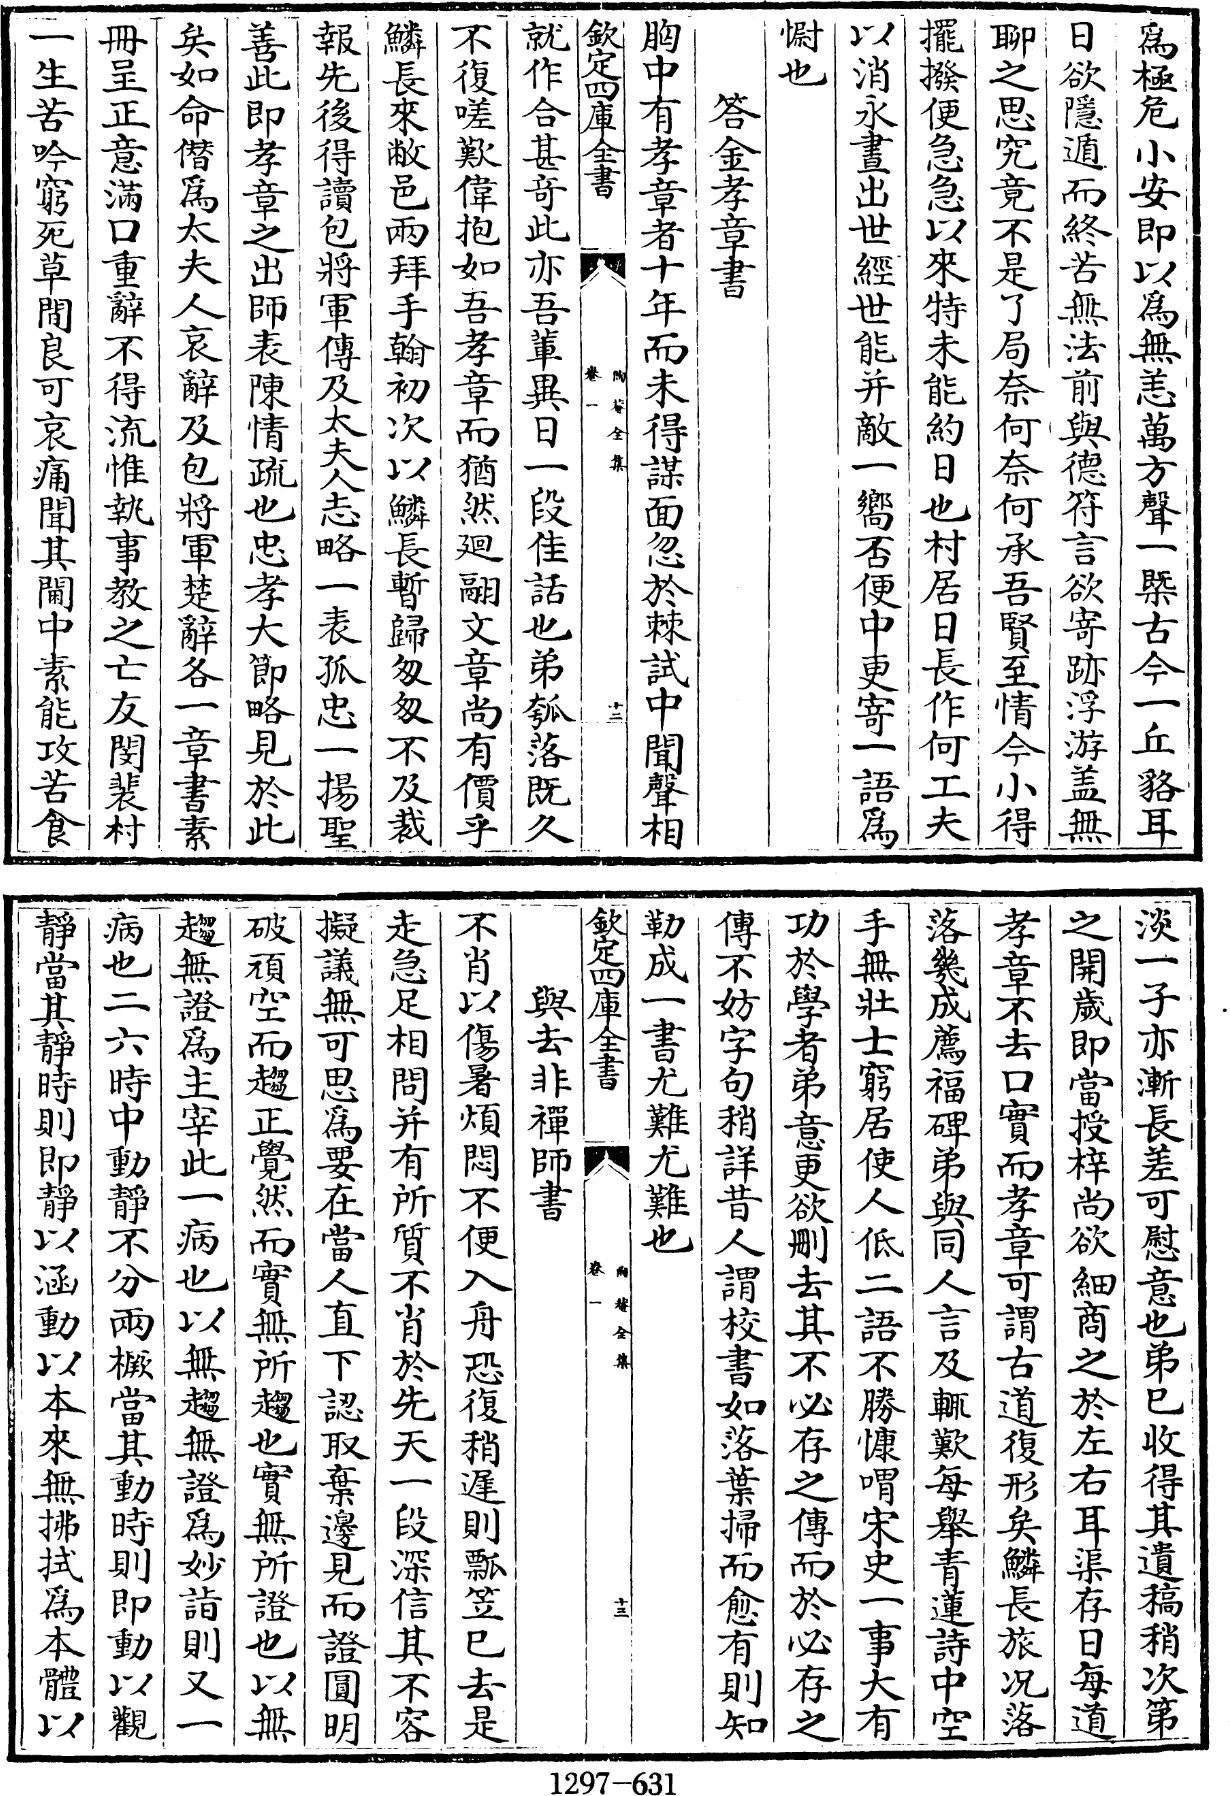 爲極危小安即以爲無恙萬方聲一槩古今一丘貉耳
日欲隱遁而終苦無法前與德符言欲寄跡浮游盖無
聊之思究竟不是了局奈何奈何承吾賢至情今小得
擺撥便急急以來特未能約日也村居日長作何工夫
以消永晝出世經世能并敵一嚮否便中更寄一語爲
慰也
答金孝章書
胸中有孝章者十年而未得謀面忽於棘試中聞聲相
欽定四庫全書
陶菴全集
卷一
十二
就作合甚奇此亦吾軰異日一段佳話也弟瓠落既久
不復嗟歎偉抱如吾孝章而猶然廻翮文章尚有價乎
鱗長來敝邑兩拜手翰初次以鱗長暫歸匆匆不及裁
報先後得讀包將軍傳及太夫人志略一表孤忠一揚聖
善此即孝章之出師表陳情疏也忠孝大節略見於此
矣如命僭爲太夫人哀辭及包將軍楚辭各一章書素
冊呈正意滿口重辭不得流惟執事教之亡友閔裴村
一生苦吟窮死草間良可哀痛聞其閫中素能攻苦食
淡一子亦漸長差可慰意也弟已收得其遺稿稍次第
之開歲即當授梓尚欲細商之於左右耳渠存日每道
孝章不去口實而孝章可謂古道復形矣鱗長旅况落
落幾成薦福碑弟與同人言及輒歎每舉青蓮詩中空
手無壯士窮居使人低二語不勝慷喟宋史一事大有
功於學者弟意更欲刪去其不必存之傳而於必存之
傳不妨字句稍詳昔人謂校書如落葉掃而愈有則知
勒成一書尤難尤難也
欽定四庫全書
陶菴全集
卷一
十三
與去非禪師書
不肖以傷暑煩悶不便入舟恐復稍遲則瓢笠已去是
走急足相問并有所質不肖於先天一段深信其不容
擬議無可思爲要在當人直下認取棄邊見而證圓明
破頑空而趨正覺然而實無所趨也實無所證也以無
趨無證爲主宰此一病也以無趨無證爲妙詣則又一
病也二六時中動靜不分兩橛當其動時則即動以觀
靜當其靜時則即靜以涵動以本來無拂拭爲本體以
1297-631